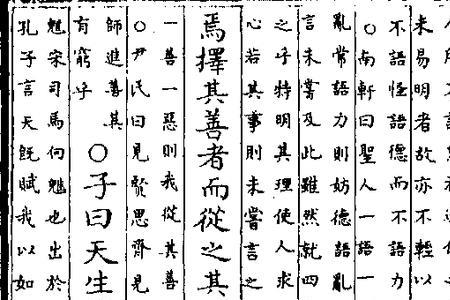 未易明者故亦不輕以
不語怪語德而不語力
○南軒曰聖人一語一
亂常語力則妨德語亂
言未嘗及此雖然就四
之乎特明其理使人求
心若其事則未嘗言之
焉擇其善者而從之其
一善一惡則我從其善
○尹氏曰見賢思齊見
師進善其
有窮乎
○子曰天生
魋宋司馬向魋也出於
孔子言天旣賦我以如